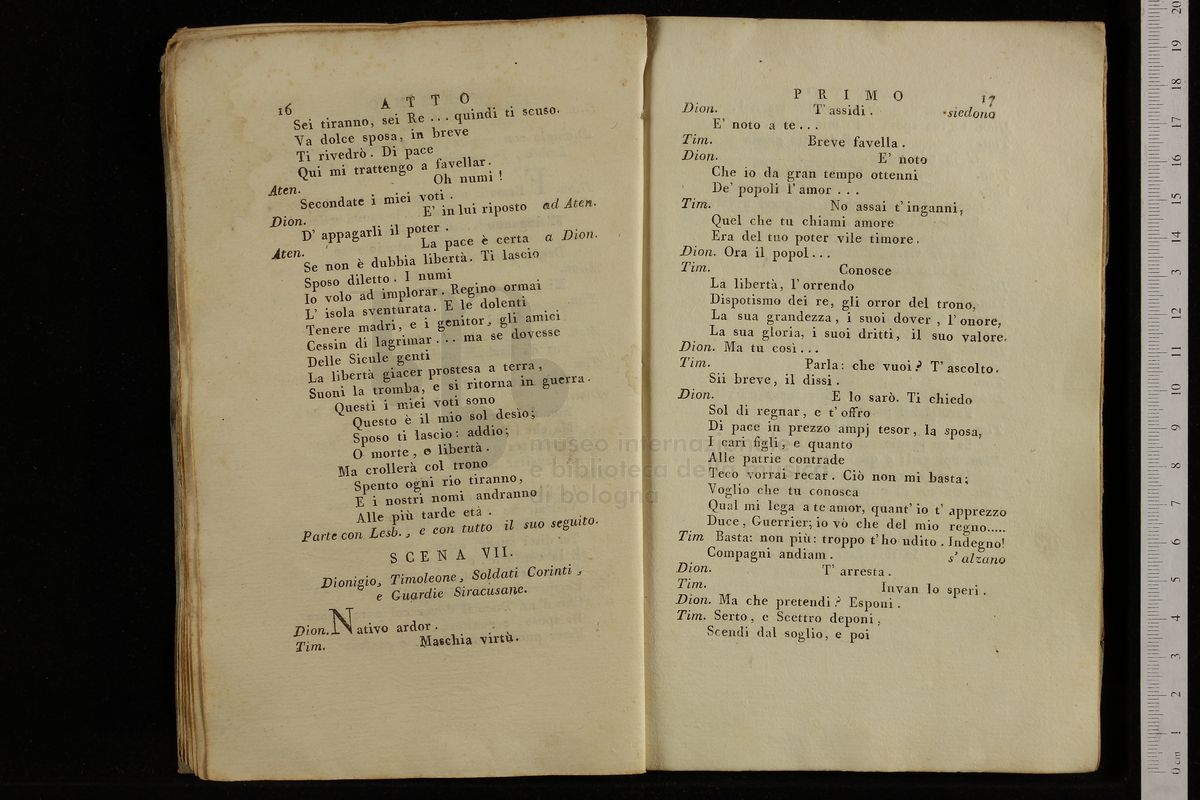 16 ATTO
Sei tiranno, sei Re ... quindi ti scuso.
Va dolce sposa, in breve
Ti rivedrò. Di pace
Qui mi trattengo a favellar.
Aten. Oh numi!
Secondate i miei voti.
Dion. E' in lui riposto ad Aten.
D' appagarli il poter.
Aten. La pace è certa a Dion.
Se non è dubbia libertà. Ti lascio
Sposo diletto. I numi
Io volo ad implorar. Regino ormai
L' isola sventurata. E le dolenti
Tenere madri, e i genitor, gli amici
Cessin di lagrimar... ma se dovesse
Delle Sicule genti
La libertà giacer prostesa a terra,
Suoni la tromba, e si ritorna in guerra.
Questi i miei voti sono
Questo è il mio sol desio;
Sposo ti lascio: addio;
O morte, o libertà.
Ma crollerà col trono
Spento ogni rio tiranno,
E i nostri nomi andranno
Alle più tarde età.
Parte con Lesb., e con tutto il suo seguito.
SCENA VII.
Dionigio, Timoleone, Soldati Corinti,
e Guardie Siracusane.
Dion. Nativo ardor.
Tim. Maschia virtù.
PRIMO 17
Dion. T' assidi. siedono
E' noto a te...
Tim. Breve favella.
Dion. E' noto
Che io da gran tempo ottenni
De' popoli l' amor ...
Tim. No assai t' inganni,
Quel che tu chiami amore
Era del tuo poter vile timore.
Dion. Ora il popol...
Tim. Conosce
La libertà, l' orrendo
Dispotismo dei re, gli orror del trono,
La sua grandezza, i suoi dover, l' onore,
La sua gloria, i suoi dritti, il suo valore.
Dion. Ma tu così...
Tim. Parla: che vuoi? T' ascolto.
Sii breve, il dissi.
Dion. E lo sarò. Ti chiedo
Sol di regnar, e t' offro
Di pace in prezzo ampj tesor, la sposa,
I cari figli, e quanto
Alle patrie contrade
Teco vorrai recar. Ciò non mi basta;
Voglio che tu conosca
Qual mi lega a te amor, quant' io t' apprezzo
Duce, Guerrier; io vò che del mio regno.....
Tim Basta: non più: troppo t' ho udito. Indegno!
Compagni andiam. s' alzano
Dion. T' arresta.
Tim. Invan lo speri.
Dion. Ma che pretendi? Esponi.
Tim. Serto, e Scettro deponi,
Scendi dal soglio, e poi
museo internazionale
e biblioteca della musica
di bologna
0 cm 1 2 3 4 5 6 7 8 9 10 11 12 13 14 15 16 17 18 19 20